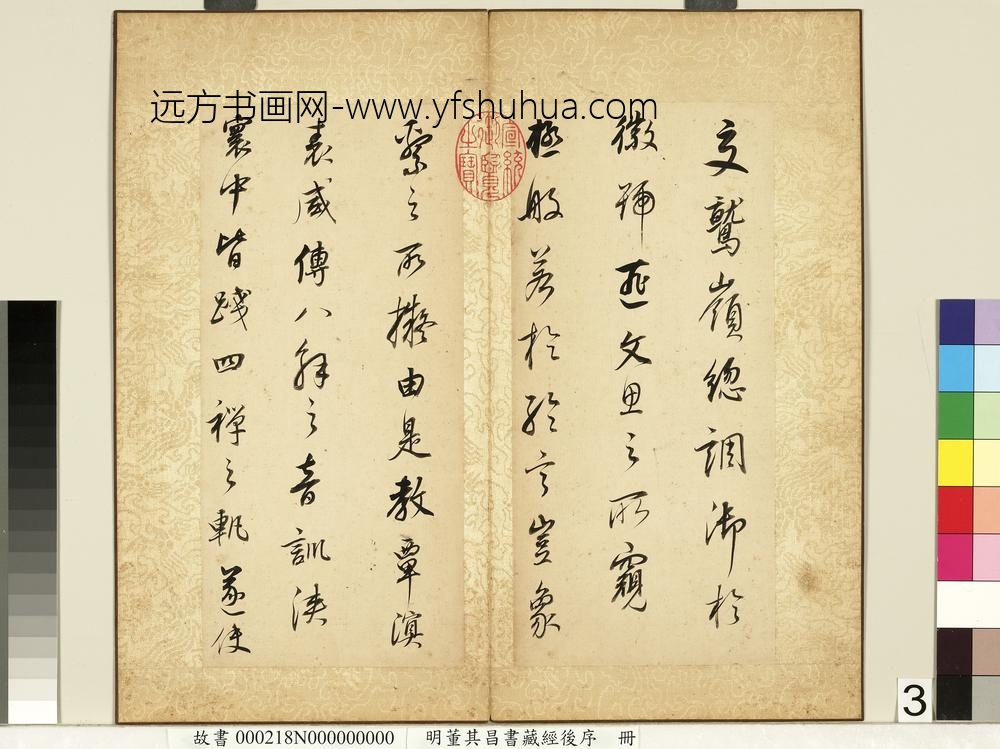 远方书画网-www.yfshuhua.com
交鷲嶺總調御於
徽號匪文思之所窺
極般若於綸言豈象
繫之所擬由是教覃溟
表咸傳八解之音訓浹
寰中皆踐四禪之軌遂使
宣統御覽之寶
3
故書 000218N000000000 明董其昌書藏經後序 冊